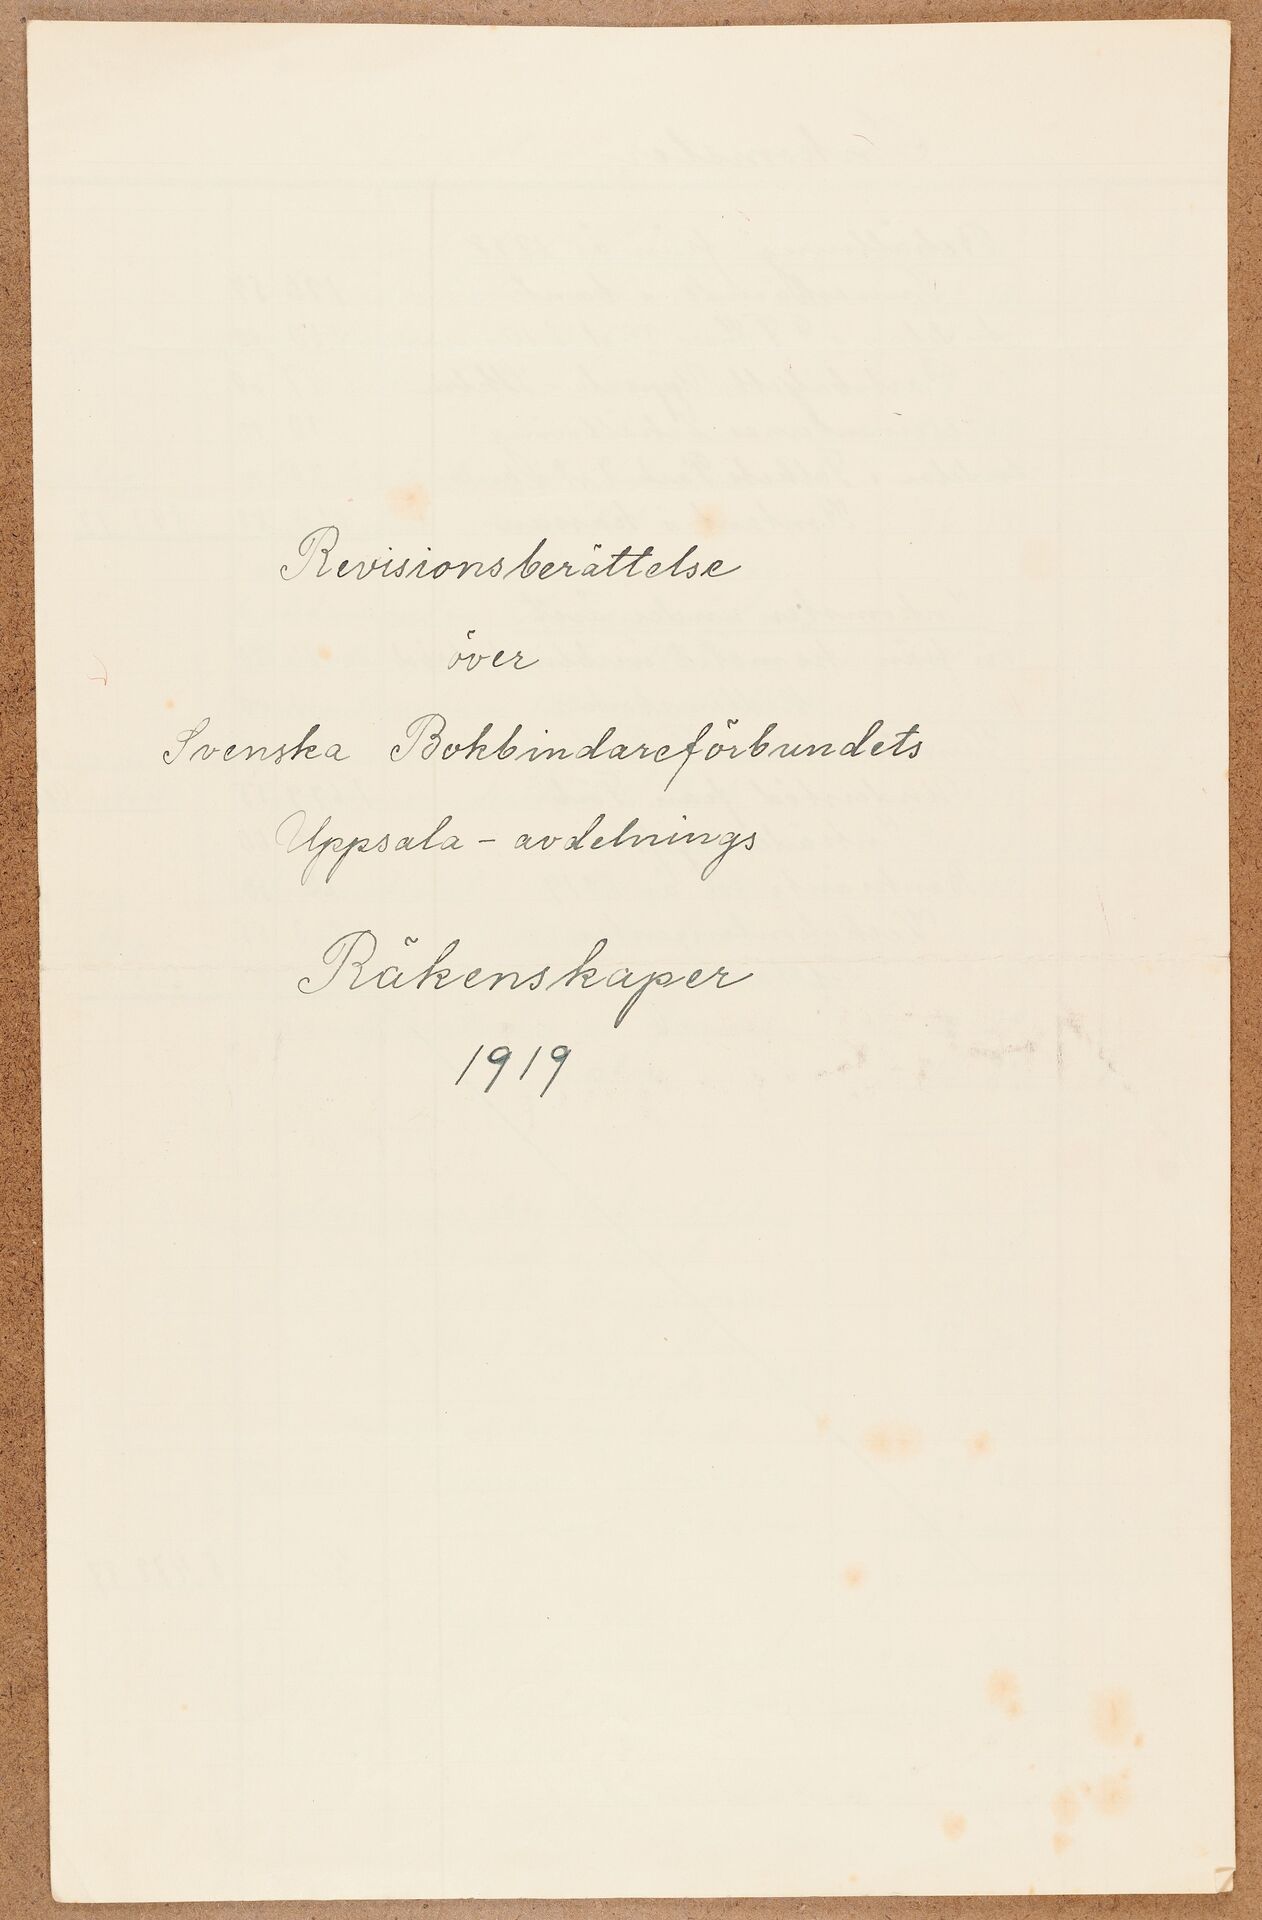 Revisionsberättelse
över
Svenska Bokbindareförbundets
Uppsala - avdelnings
Räkenskaper
1919